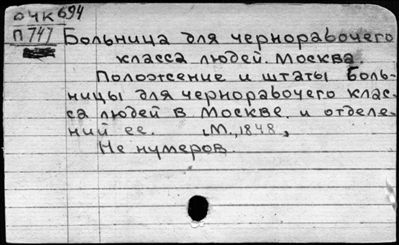 ОЧК 694
П 747
Больница для чернорабочего
класса людей. Москва.
Положение и штаты Боль-
ницы для чернорабочего клас-
са людей в Москве. и отделе-
ний ее. М., 1848,
Не нумеров.